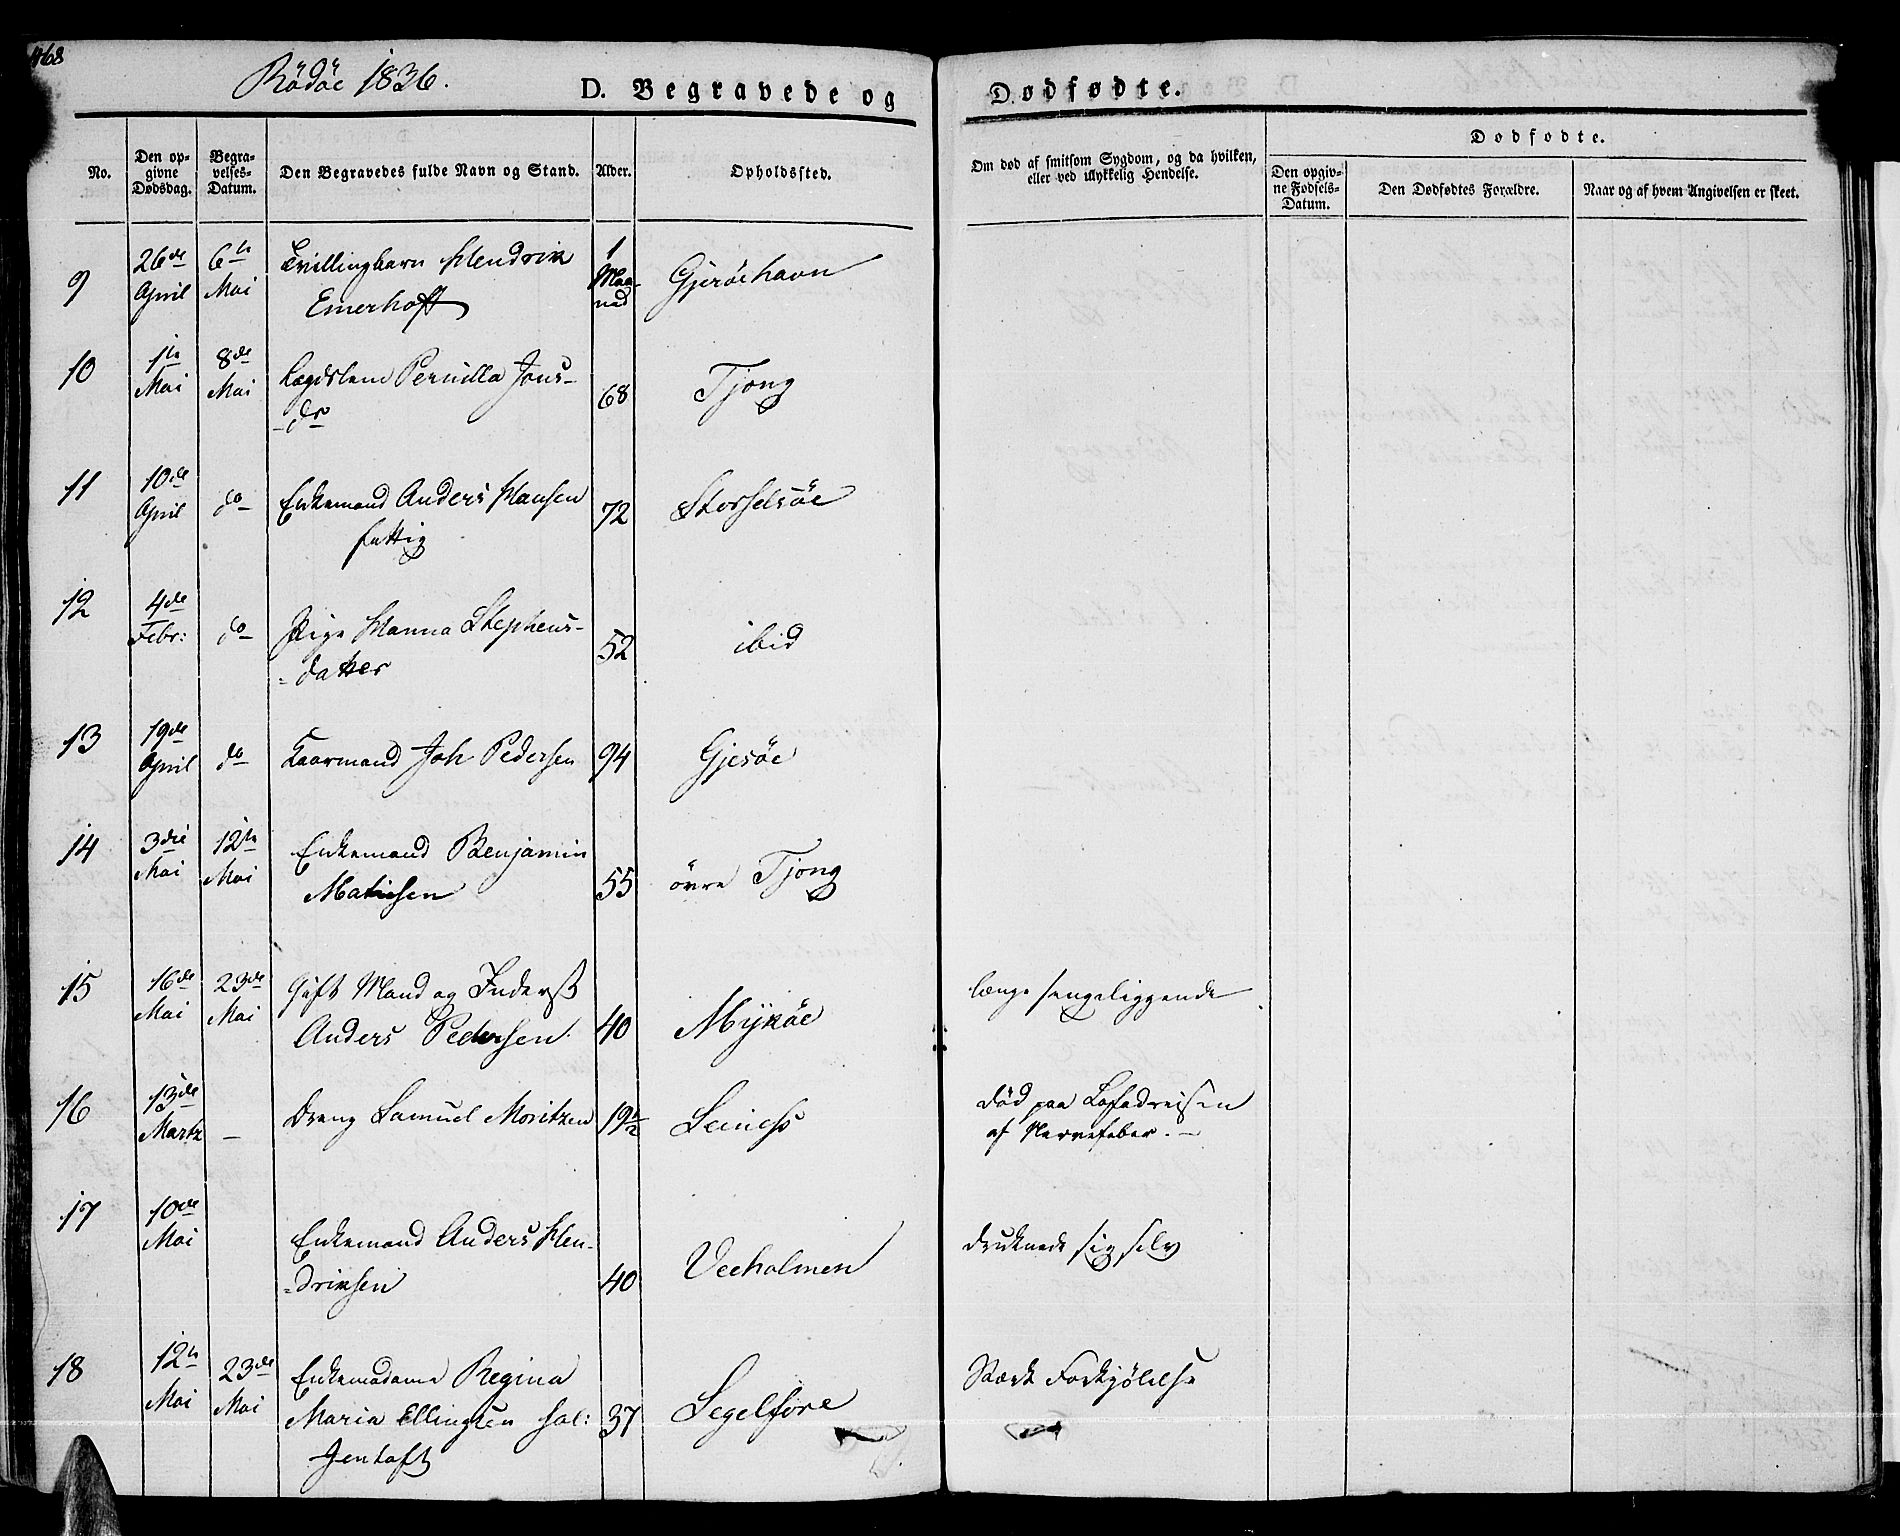 468
Rödöe 1836.
D. Begravede og Dødfødte.
Dødfødte.
No.
Den op-
givne
Dødsdag.
Begra-
velses-
Datum.
Den Begravedes fulde Navn og Stand.
Alder.
Opholdssted.
Om død af smitsom Sygdom, og da hvilken,
eller ved ulykkelig Hendelse.
Den opgiv-
ne Fødsels-
Datum.
Den Dødfødtes Forældre.
Naar og af hvem Angivelsen er skeet.
9 26de April 6te Mai Tvillingbarn Hendrik
Emerhoff
1 Maa-
ned
Gjeröehavn
10 1te Mai 8de Mai Lægdslem Pernilla Jons-
-dr
68 Tjong
11 10de April do Enkemand Anders Hansen
fattig
72 Storselsöe
12 4de Febr: do Pige Hanna Stephens-
-datter
52 ibid
13 19de April do Kaarmand Joh Pedersen 94 Gjesöe
14 3die Mai 12te Mai Enkemand Benjamin
Mathisen
55 övre Tjong
15 16de Mai 23de Mai Gift Mand og Inderst
Anders Pedersen
40 Myköe længe sengeliggende
16 13de Martz – Dreng Samuel Moritzen 19½ Seines död paa Lofodreisen
af Nervefeber. –
17 10de Mai Enkemand Anders Hen-
-driksen
40 Veeholmen druknede sig selv
18 12te Mai 23de Mai Enkemadame Regina
Maria Ellingsen sal:
Jentoft
37 Segelföre Stærk Forkjölelse